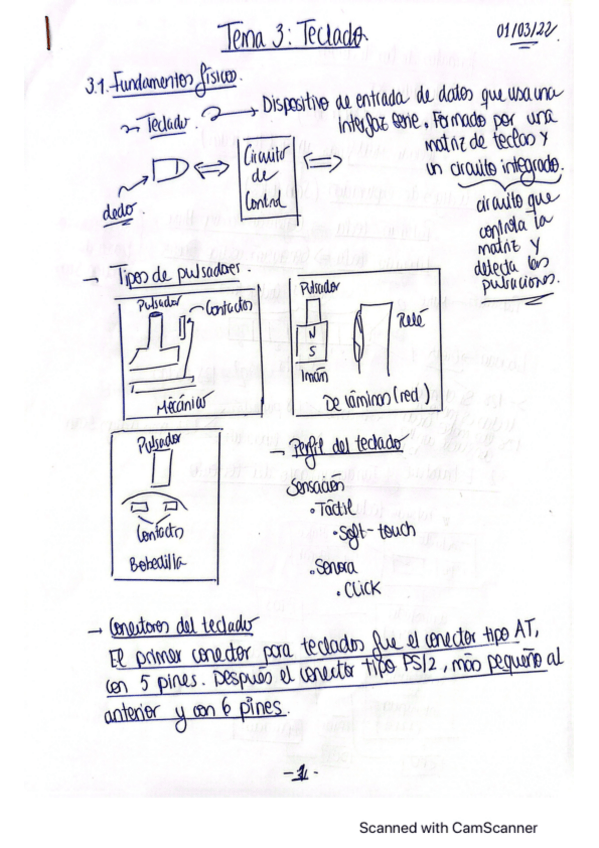 Tema 3: Teclado.
01/03/22
3.1. Fundamentos físicos.
Teclado.
Dispositivo de entrada de datos que usa una
interfaz serie. Formado por una
matriz de teclas y
un circuito integrado.
dedo.
Circuito
de
Control
circuito que
controla la
matriz y
detecta las
pulsaciones.
Tipos de pulsadoer.
Pulsador
Contactos
Mecánico
Pulsador
N
S
Imán
Relé
De láminas (red.)
Pulsador
Contactos
Bobedilla
Perfil del teclado
Sensación
• Táctil
• Soft-touch
• Sonora
• Click
Conectores del teclado
El primer conector para teclados fue el conector tipo AT,
con 5 pines. Después el conector tipo PS/2, más pequeño al
anterior y con 6 pines.
-1-
Scanned with CamScanner